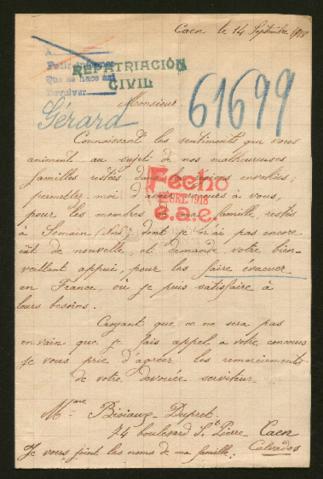 Caen le 14 Septembre 1918
REPATRIACIÓN
CIVIL
Monsieur
61699
Gérard
Connaissant les sentiments que vous
animent au sujet de nos malheureuses
familles restées dans les régions envahies,
permettez moi d'avoir recours à vous,
pour les membres de ma famille, restés
à Somain (Nord) dont je n'ai pas encore
eût de nouvelle, et demande votre bien-
veillant appui, pour les faire évacuer
en France, où je puis satisfaire à
leurs besoins.
Fecho
BRE 1918
Croyant que ce ne sera pas
en vain que je fais appel a votre concours
je vous prie d'agréer les remerciements
de votre dévouée serviteur.
Mme Bisiaux-Dupret
74 boulevard St Pierre. Caen
Calvados
Je vous joint les noms de ma famille.